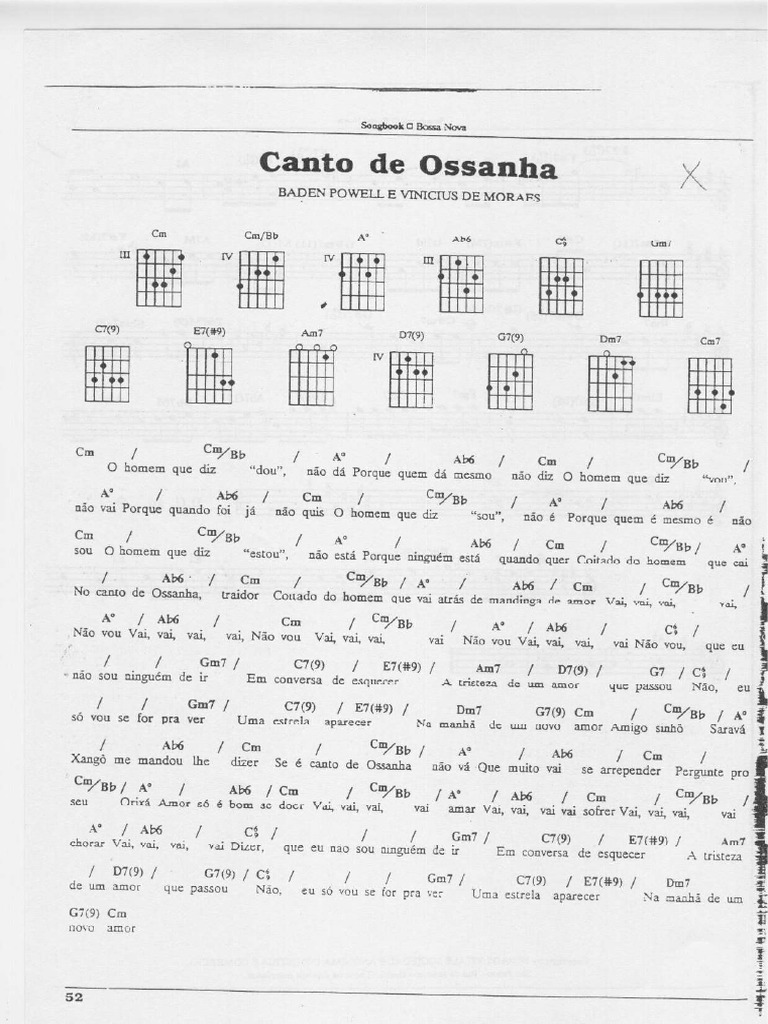 Songbook □ Bossa Nova
Canto de Ossanha
BADEN POWELL E VINICIUS DE MORAES
Cm Cm/Bb A° Ab6 C6/9 Gm7
III IV IV III
C7(9) E7(#9) Am7 D7(9) G7(9) Dm7 Cm7
IV
Cm / Cm/Bb / A° / Ab6 / Cm / Cm/Bb /
O homem que diz "dou", não dá Porque quem dá mesmo não diz O homem que diz "vou",
A° / Ab6 / Cm / Cm/Bb / A° / Ab6 /
não vai Porque quando foi já não quis O homem que diz "sou", não é Porque quem é mesmo é não
Cm / Cm/Bb / A° / Ab6 / Cm / Cm/Bb / A°
sou O homem que diz "estou", não está Porque ninguém está quando quer Coitado do homem que cai
/ Ab6 / Cm / Cm/Bb / A° / Ab6 / Cm / Cm/Bb /
No canto de Ossanha, traidor Coitado do homem que vai atrás de mandinga de amor Vai, vai, vai, vai,
A° / Ab6 / Cm / Cm/Bb / A° / Ab6 / C6/9 /
Não vou Vai, vai, vai, vai, Não vou Vai, vai, vai, vai Não vou Vai, vai, vai, vai Não vou, que eu
/ / Gm7 / C7(9) / E7(#9) / Am7 / D7(9) / G7 / C6/9 /
não sou ninguém de ir Em conversa de esquecer A tristeza de um amor que passou Não, eu
/ / Gm7 / C7(9) / E7(#9) / Dm7 G7(9) Cm / Cm/Bb / A°
só vou se for pra ver Uma estrela aparecer Na manhã de um novo amor Amigo sinhô Saravá
/ Ab6 / Cm / Cm/Bb / A° / Ab6 / Cm /
Xangô me mandou lhe dizer Se é canto de Ossanha não vá Que muito vai se arrepender Pergunte pro
Cm/Bb / A° / Ab6 / Cm / Cm/Bb / A° / Ab6 / Cm / Cm/Bb /
seu Orixá Amor só é bom se doer Vai, vai, vai, vai amar Vai, vai, vai vai sofrer Vai, vai, vai, vai
A° / Ab6 / C6/9 / / / Gm7 / C7(9) / E7(#9) / Am7
chorar Vai, vai, vai, vai Dizer, que eu nao sou ninguém de ir Em conversa de esquecer A tristeza
/ D7(9) / G7(9) / C6/9 / / / Gm7 / C7(9) / E7(#9) / Dm7
de um amor que passou Não, eu só vou se for pra ver Uma estrela aparecer Na manhã de um
G7(9) Cm
novo amor
52